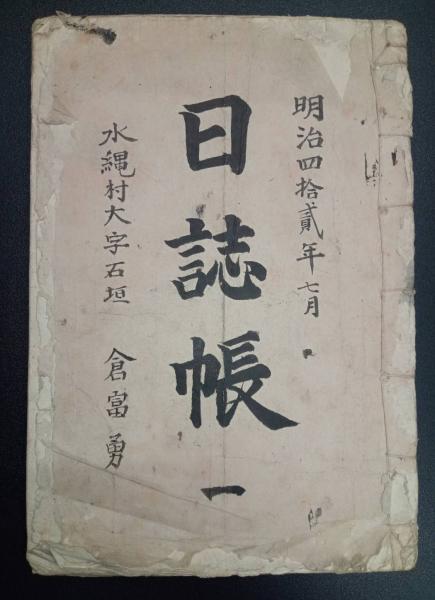 明治四拾貳年七月
日誌帳 一
水縄村大字石垣 倉富勇